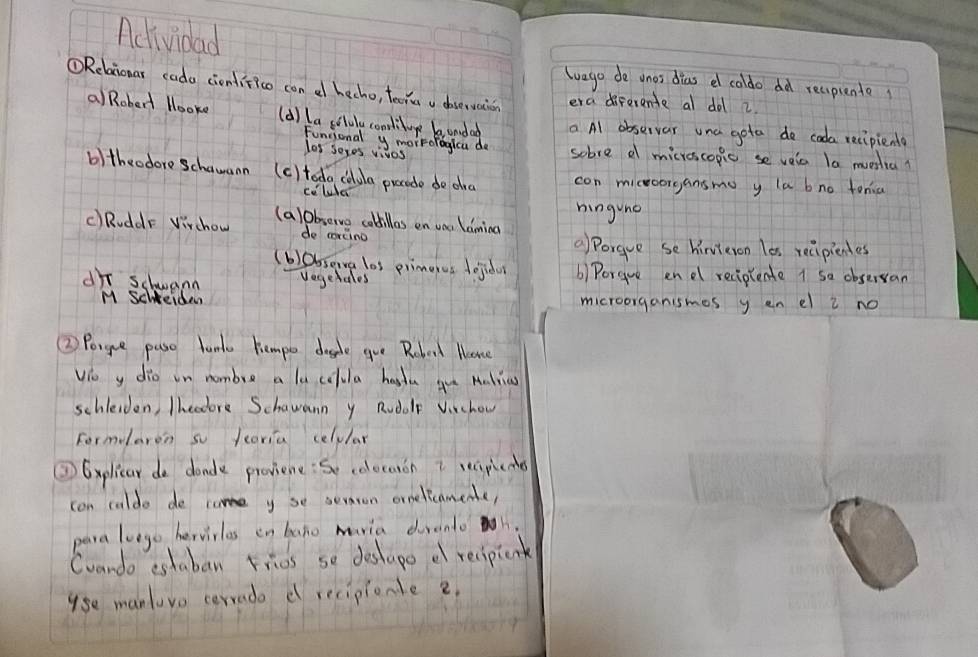 Actividad
① Relacionar cada científico con el hecho, teoría u observación
a) Robert Hooke
(d) La celula constituye la unidad
Funcional y morfologica de
los seres vivos
b) theodore Schawann
(c) todo celula procede de otra
celula
c) Rudolf Virchow
(a) Observo celdillas en una lámina
de corcino
(b) Observa los primeros tejidos
Vegetales
d) T Schwann
M Schleiden
② Porque paso tanto tiempo desde que Robert Hooke
vio y dio un nombre a la celula hasta que Matias
schleiden, Theodore Schawann y Rudolf Virchow
Formularon su teoria celular
③ Explicar de donde proviene: Se colocarón 2 recipientes
con caldo de carne y se serraron ermeticamente,
para luego hervirlos en baño maría durante H.
Cuando estaban frios se destapo el recipiente
y se mantuvo cerrado el recipiente 2.
luego de unos dias el caldo del recipiente 1
era diferente al del 2.
a Al observar una gota de cada recipiente
sobre el microscopio se veia la muestra 1
con microorganismo y la b no tenia
ninguno
a) Porque se hirvieron los recipientes
b) Porque en el recipiente 1 se observan
microorganismos y en el 2 no